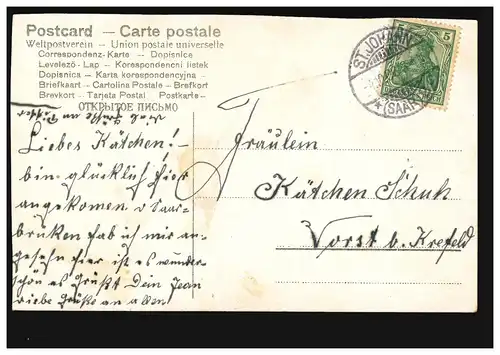 Postcard — Carte postale
Weltpostverein — Union postale universelle
Correspondenz-Karte — Dopisnice
Levelező-Lap — Korespondencni listek
Dopisnica — Karta korespondencyjna
Briefkaart — Cartolina Postale — Brefkort
Brevkort — Tarjeta Postal Postkarte
ОТКРЫТОЕ ПИСЬМО
Liebes Kätchen!
bin glücklich hier
angekommen Saar-
brüken hab ich mir an-
gesehn hier ist es wunder
schön es grüßt Dein Jean
liebe Grüße an allen
ST. JOHANN
(SAAR)
5 5
Fräulein
Kätchen Schuh
Vorst b. Krefeld